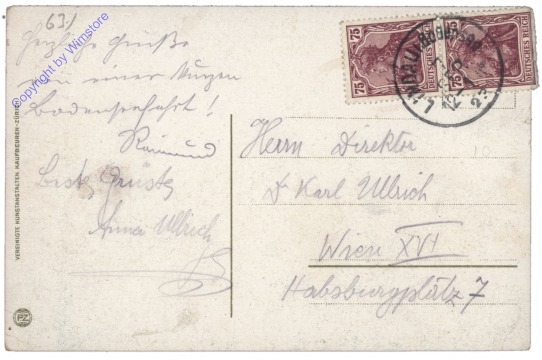 63.-
Herzliche Grüße
von einer kurzen
Bodenseefahrt!
Raimund
Beste Grüße,
Anna Ullrich
Herrn Direktor
Dr Karl Ullrich
Wien XVI
Habsburgplatz 7
75
DEUTSCHES REICH
75
DEUTSCHES REICH
LINDAU (Bodensee)
VEREINIGTE KUNSTANSTALTEN KAUFBEUREN-ZÜRICH
Copyright by Wimstore